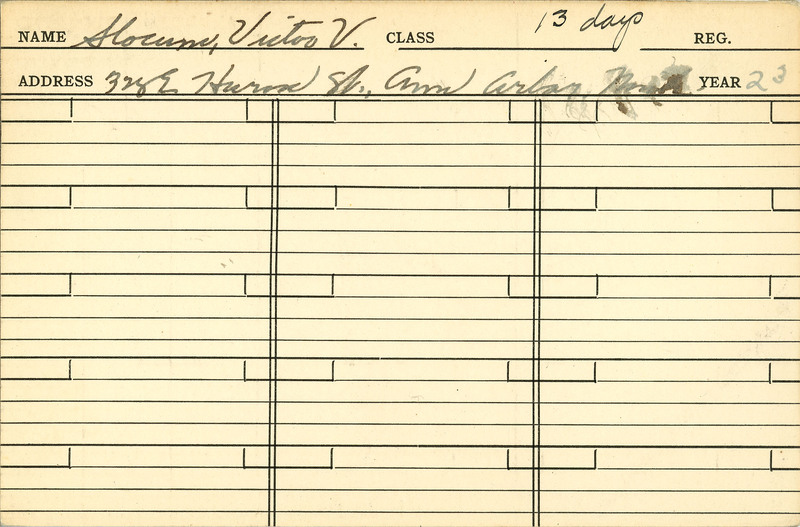 NAME Slocum, Victor V. CLASS 13 days REG.
ADDRESS E. Huron St., Ann Arbor, YEAR 23